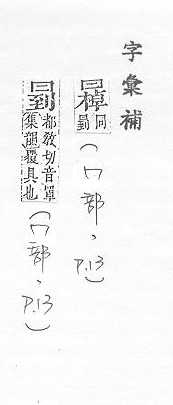 字彙補
同
(冂部、P.13)
都教切音罩
覆具也
(冂部、P.13)